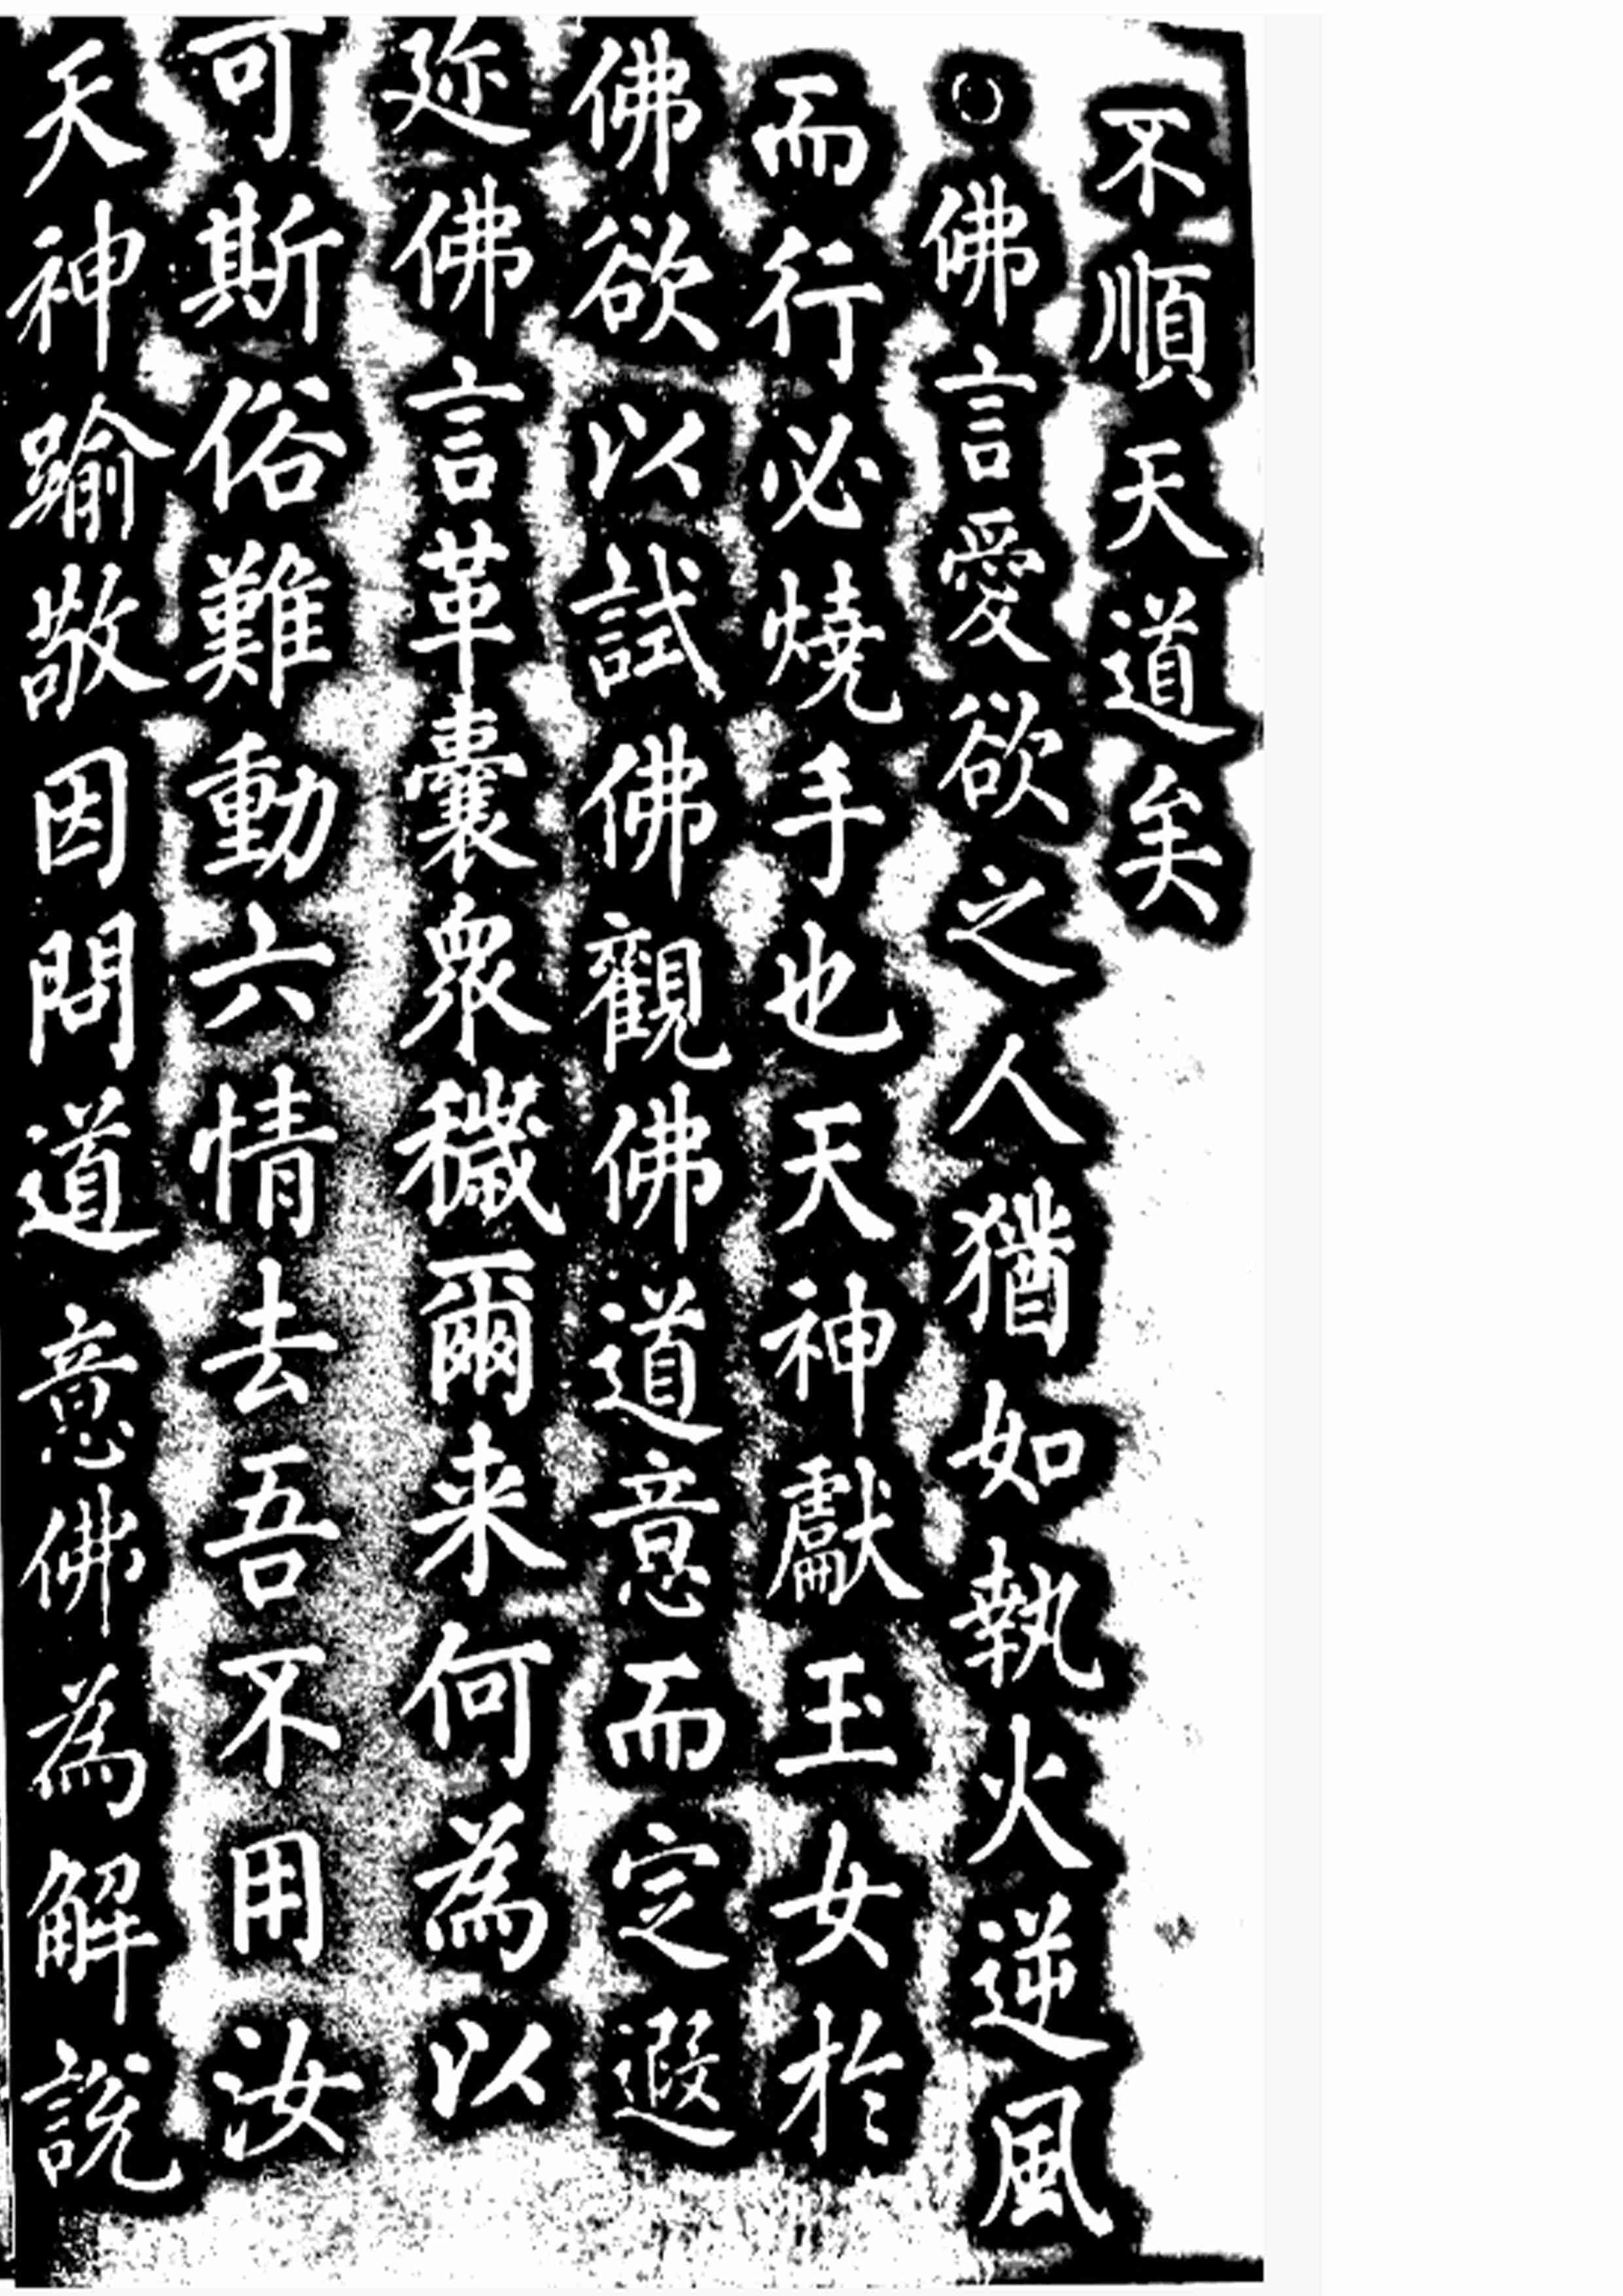 不順天道矣
○佛言愛欲之人猶如執火逆風
而行必燒手也天神獻玉女於
佛欲以試佛觀佛道意而定遐
迩佛言革囊衆穢爾来何為以
可斯俗難動六情去吾不用汝
天神踰敬因問道意佛為解說